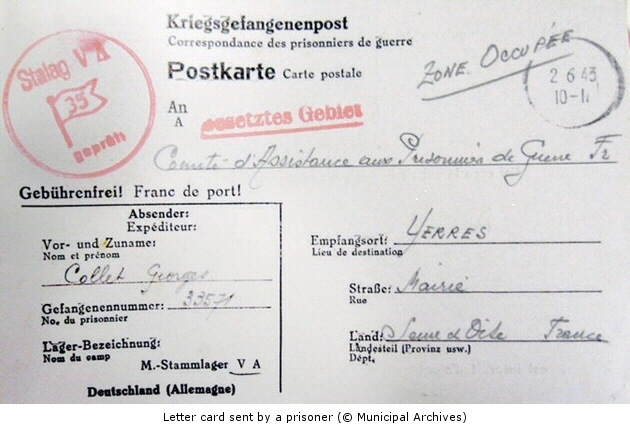 Kriegsgefangenenpost
Correspondance des prisonniers de guerre
Postkarte Carte postale
ZONE OCCUPÉE
2 6.43
10-11
Stalag V A
35
geprüft
An
A
Besetztes Gebiet
Comité d'Assistance aux Prisonniers de Guerre Fr
Gebührenfrei! Franc de port!
Absender:
Expéditeur:
Vor- und Zuname:
Nom et prénom
Collet Georges
Gefangenennummer: 33571
No. du prisonnier
Lager-Bezeichnung:
Nom du camp
M.-Stammlager V A
Deutschland (Allemagne)
Empfangsort: YERRES
Lieu de destination
Straße: Mairie
Rue
Land: Seine et Oise France
Landesteil (Provinz usw.)
Dépt.
Letter card sent by a prisoner (© Municipal Archives)